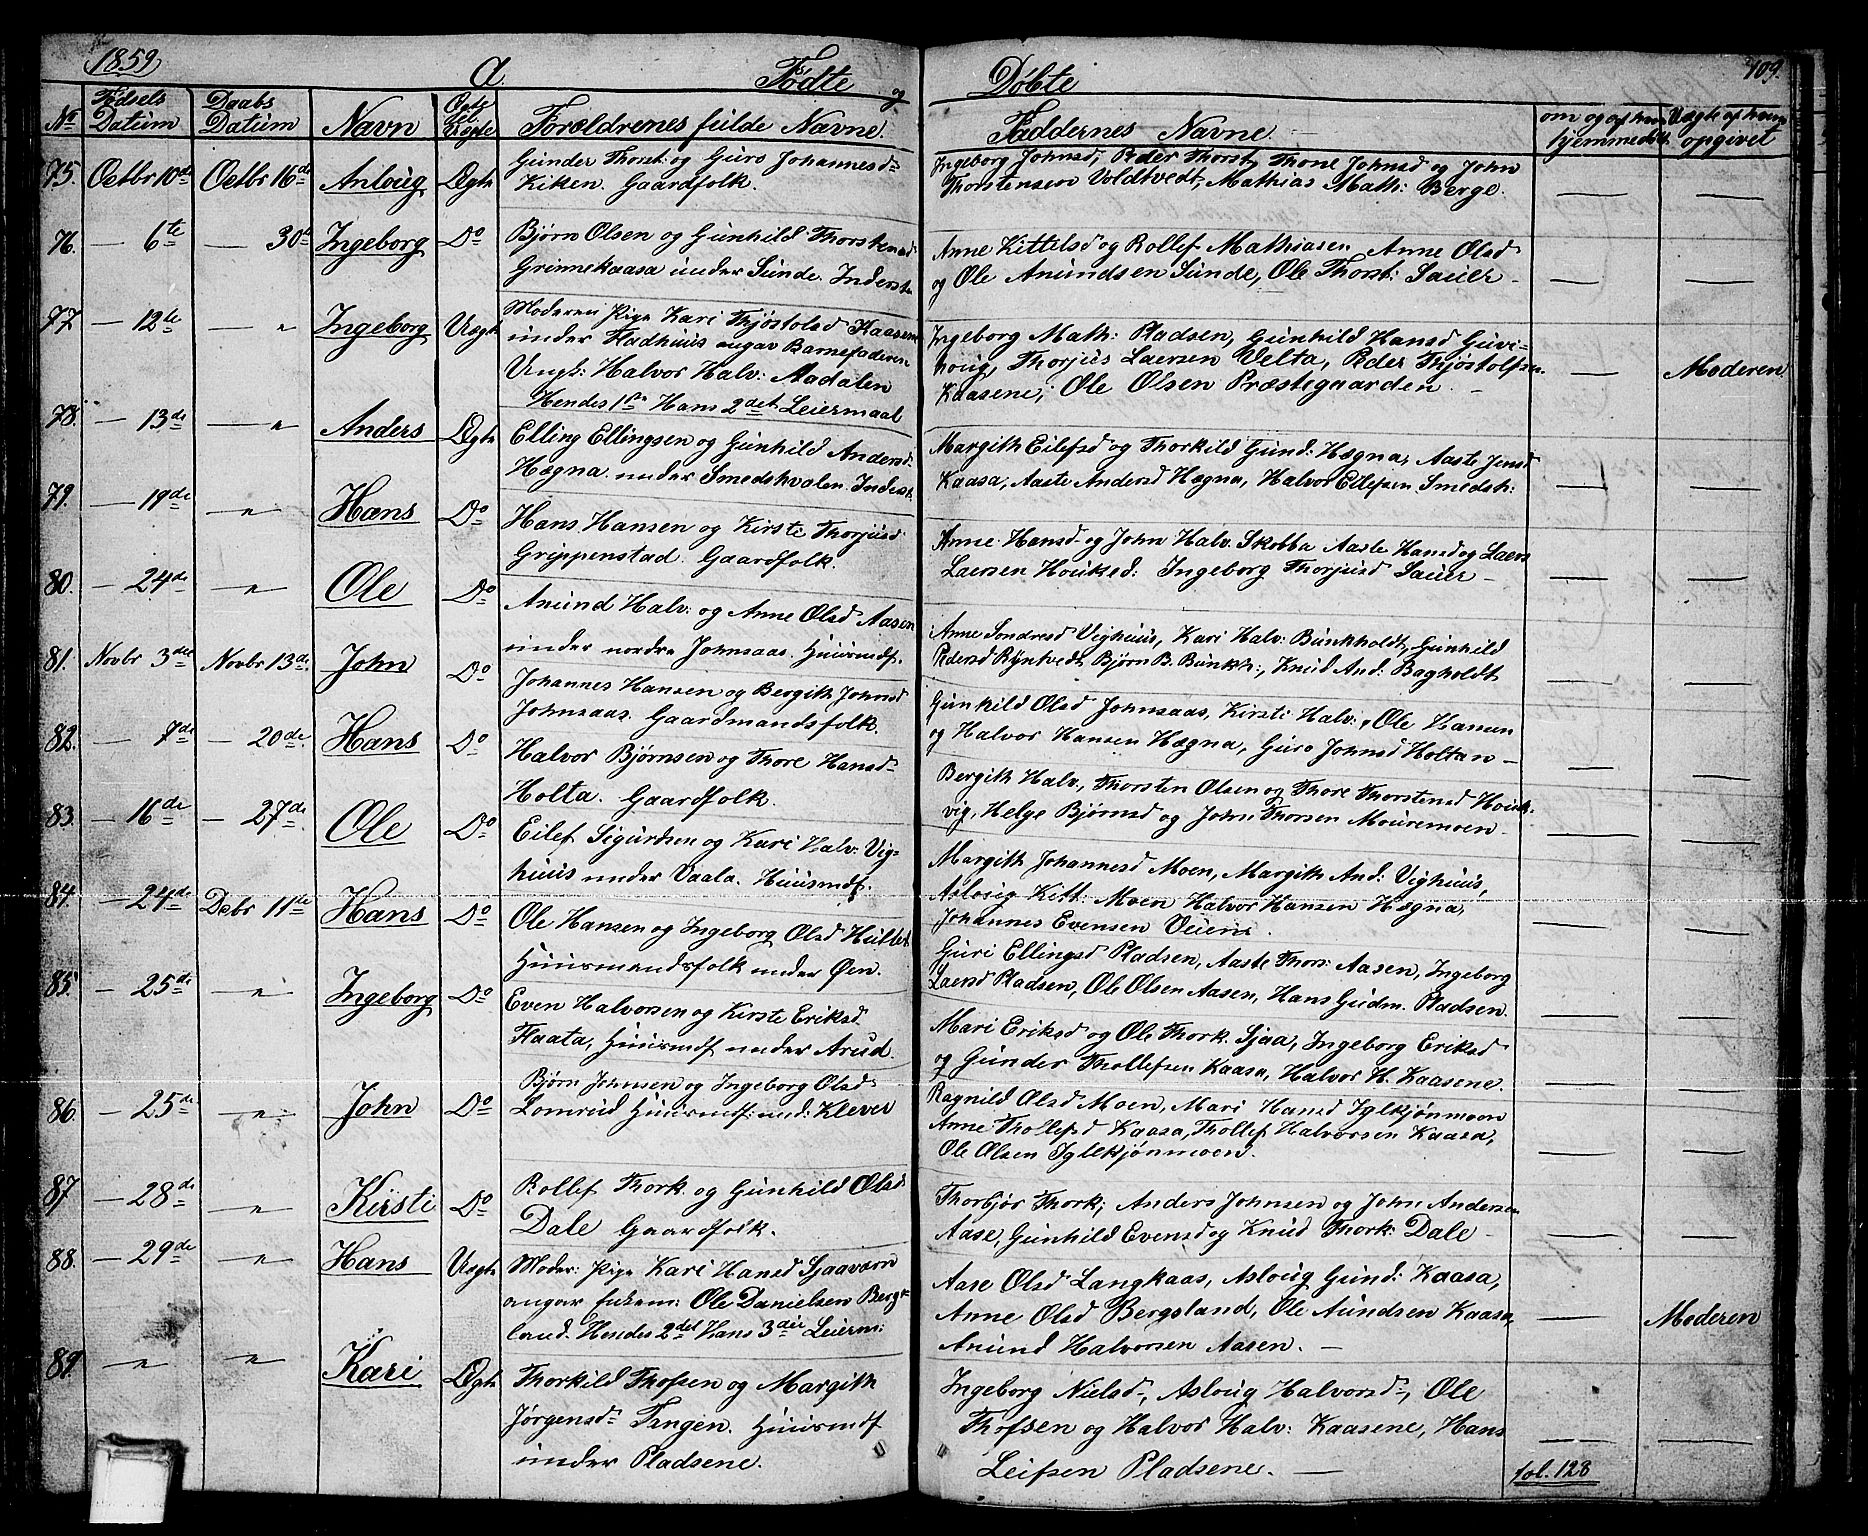 1859
a
Fødte og
Døbte
109.
No
Fødsels Datum
Daabs Datum
Navn
Forældrenes fulde Navne
Faddernes Navne
opgivet
75. Octbr 10de Octbr 16de Anloug Ægte
Gunder Thorst: og Guro Johannesd
Kiken. Gaardfolk.
Ingeborg Johnsd, Peder Thorst, Thone Johnsd og John
Thorstensen Voldtvedt, Mathias Math: Berge.
76. — 6te — 30te Ingeborg Do
Bjørn Olsen og Gunhild Thorstensd
Grinnekaasa under Sunde. Inderst
Anne Kittelsd og Rollef Mathiasen, Anne Olsd
og Ole Anundsen Sunde, Ole Thorst: Sauer —
77 — 12te — " Ingeborg Uægte
Moderen Pige Kari Thjøstolsd Kaasene
under Fladhuus angav Barnefaderen
Ungk: Halvor Halv: Aadalen
Hendes 1ste Hans 2det Leiermaal
Ingeborg Math: Pladsen, Gunhild Hansd Guvi-
houg, Thorjus Laersen Velta, Peder Thjøstolfsen
Kaasene, Ole Olsen Præstegaarden —
Moderen
78. — 13de — " Anders Ægte
Elling Ellingsen og Gunhild Andersd
Hægna under Smedshvalen Inderst
Margith Eilefsd og Thorkild Gund: Hægna, Aaste Jensd
Kaasa, Aaste Andersd Hægna, Halvor Ellefsen Smedsh:
79. — 19de — " Hans Do
Hans Hansen og Kirsti Thorjusd
Grippenstad. Gaardfolk.
Anne Hansd og John Halv. Skobba Aaste Hansd og Laers
Laersen Houked: Ingeborg Thorjusd Sauer —
80. — 24de — " Ole Do
Anund Halv: og Anne Olsd Aasen
under nordre Johnsaas. Huusmdf.
Anne Sondresd Vighuus, Kari Halv: Bunkholdt, Gunhild
Pedersd Ryntvedt, Bjørn B. Bunkh:, Knud And: Bagholdt
81. Novbr 3die Novbr 13de John Do
Johannes Hansen og Bergith Johnsd
Johnsaas. Gaardmandsfolk.
Gunhild Olsd Johnsaas, Kirsti Halv:, Ole Hansen
og Halvor Hansen Hægna, Guro Johnsd Holtan —
82. — 7de — 20de Hans Do
Halvor Bjørnsen og Thore Hansd
Holta. Gaardfolk.
Bergith Halv., Thorsten Olsen og Thore Thorstensd Houk-
vig, Helge Bjørnsd og John Thorsen Mouremoen —
83. — 16de — 27de Ole Do
Eilef Sigurdsen og Kari Halv: Vig-
huus under Vaala. Huusmdf.
Margith Johannesd Moen, Margith And: Vighuus,
Asloug Kitt: Moen Halvor Hansen Hægna,
Johannes Evensen Veien.
84. — 24de Debr 11te Hans Do
Ole Hansen og Ingeborg Olsd Hullet
Huusmandsfolk under Øen.
Guri Ellingsd Pladsen, Aaste Thors: Aasen, Ingeborg
Laersd Pladsen, Ole Olsen Aasen, Hans Gudm. Pladsen.
85. — 25de — " Ingeborg Do
Even Halvorsen og Kirste Eriksd
Flaata, Huusmdf under Arud.
Mari Eriksd og Ole Thork. Sjaa, Ingeborg Eriksd
og Gunder Thollefsen Kaasa, Halvor H. Kaasene.
86 — 25de — " John Do
Bjørn Johnsen og Ingeborg Olsd
Lomrud Huusmdf: und: Klever
Ragnild Olsd Moen, Mari Hansd Iglekjønmoen
Anne Thollefsd Kaasa, Thollef Halvorsen Kaasa,
Ole Olsen Iglekjønmoen.
87 — 28de — " Kirsti Do
Rollef Thork. og Gunhild Olsd
Dale Gaardfolk.
Thorbjør Thork; Anders Johnsen og John Andersen
Aase, Gunhild Evensd og Knud Thork: Dale —
88. — 29de — " Hans Uægte
Moder: Pige Kari Hansd Sjaavorn
angav Enkem: Ole Danielsen Berg-
land. Hendes 2det Hans 3die Leierm:
Aase Olsd Langkaas, Asloug Gund: Kaasa,
Anne Olsd Bergsland, Ole Aundsen Kaasa
Anund Halvorsen Aasen. —
Moderen
89. — " — " Kari Ægte
Thorkild Thofsen og Margith
Jørgensd Tangen. Huusmdf
under Pladsene.
Ingeborg Nielsd, Asloug Halvorsd, Ole
Thofsen og Halvor Halv: Kaasene, Hans
Leifsen Pladsene. —
fol. 128